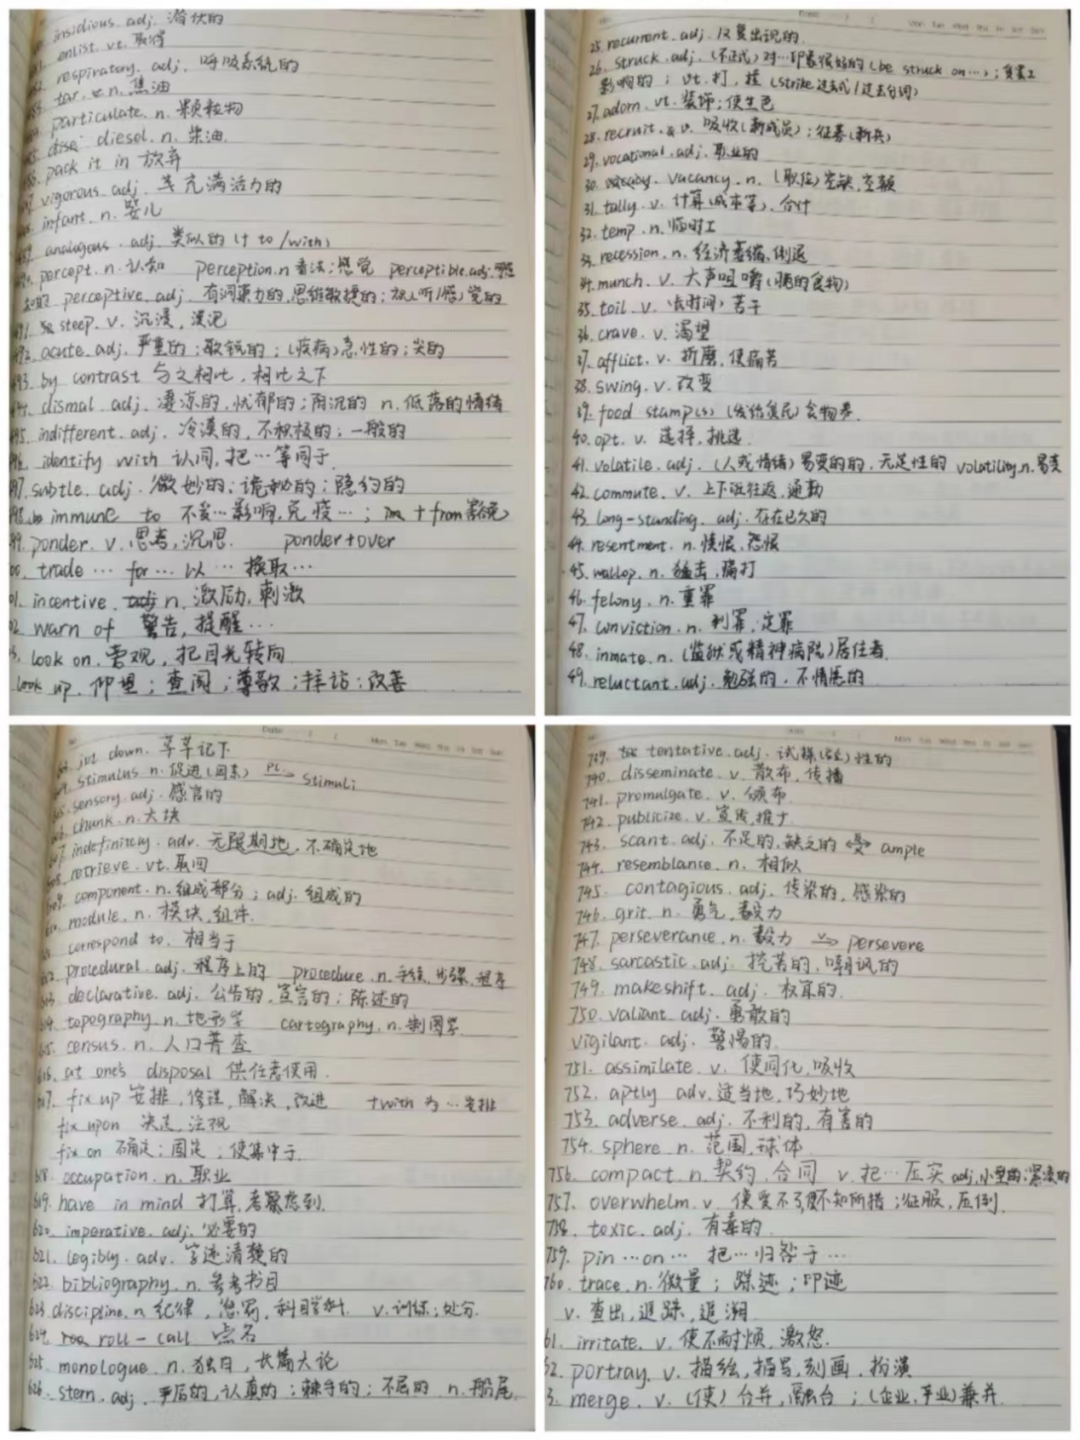 insidious. adj. 潜伏的
enlist. vt. 取得
respiratory. adj. 呼吸系统的
tar. n. 焦油
particulate. n. 颗粒物
diesel. n. 柴油.
pack it in 放弃
vigorous. adj. 充满活力的
infant. n. 婴儿
analogous. adj. 类似的 (+ to / with)
percept. n. 认知 perception. n 看法; 感觉 perceptible. adj.
perceptive. adj. 有洞察力的, 思维敏捷的; 视(听/感)觉的
steep. v. 沉浸, 浸泡
acute. adj. 严重的; 敏锐的; (疾病)急性的; 尖的
by contrast 与之相比, 相比之下
dismal. adj. 凄凉的, 忧郁的; 阴沉的 n. 低落的情绪
indifferent. adj. 冷漠的, 不积极的; 一般的
identify with 认同, 把…等同于
subtle. adj. 微妙的; 诡秘的; 隐约的
immune to 不受…影响, 免疫…; + from 豁免
ponder. v. 思考, 沉思. ponder+over
trade … for … 以 … 换取 …
incentive. n. 激励, 刺激
warn of 警告, 提醒 …
look on. 旁观, 把目光转向
look up. 仰望; 查阅; 尊敬; 拜访; 改善
25. recurrent. adj. 反复出现的.
26. struck. adj. (不正式) 对…印象很好的 (be struck on …); 受罢工
影响的; vt. 打, 撞 (strike 过去式/过去分词)
27. adorn. vt. 装饰; 使生色
28. recruit. v. 吸收(新成员); 征募(新兵)
29. vocational. adj. 职业的
30. vacancy. n. (职位)空缺, 空额
31. tally. v. 计算(成本等), 合计
32. temp. n. 临时工
33. recession. n. 经济萎缩, 倒退
34. munch. v. 大声咀嚼(脆的食物)
35. toil. v. (长时间) 苦干
36. crave. v. 渴望
37. afflict. v. 折磨, 使痛苦
38. swing. v. 改变
39. food stamp(s) (发给贫民) 食物券.
40. opt. v. 选择, 挑选.
41. volatile. adj. (人或情绪) 易变的的, 无定性的 volatility. n. 易变
42. commute. v. 上下班往返, 通勤
43. long-standing. adj. 存在已久的
44. resentment. n. 愤恨, 怨恨
45. wallop. n. 猛击, 痛打
46. felony. n. 重罪
47. conviction. n. 判罪, 定罪
48. inmate. n. (监狱或精神病院)居住者.
49. reluctant. adj. 勉强的, 不情愿的
jot down. 草草记下
stimulus. n. 促进(因素) PL. → stimuli
sensory. adj. 感官的
chunk. n. 大块
indefinitely. adv. 无限期地, 不确定地
retrieve. vt. 取回
component. n. 组成部分; adj. 组成的
module. n. 模块, 组件.
correspond to. 相当于
procedural. adj. 程序上的 procedure. n. 手续, 步骤, 程序
declarative. adj. 公告的, 宣言的; 陈述的
topography. n. 地形学 cartography. n. 制图学.
census. n. 人口普查
at one's disposal 供任意使用.
fix up 安排, 修理, 解决, 改进 +with 为…安排
fix upon 决定, 注视
fix on 确定; 固定; 使集中于.
618. occupation. n. 职业
619. have in mind 打算, 考虑想到.
620. imperative. adj. 必要的
621. legibly. adv. 字迹清楚的
622. bibliography. n. 参考书目
623. discipline. n. 纪律, 惩罚, 科目学科 v. 训练; 处分.
624. roll-call 点名
625. monologue. n. 独白, 长篇大论
626. stern. adj. 严厉的, 认真的; 棘手的; 不屈的 n. 船尾.
739. tentative. adj. 试探(验)性的
740. disseminate. v. 散布, 传播
741. promulgate. v. 颁布.
742. publicize. v. 宣传, 推广
743. scant. adj. 不足的, 缺乏的 ample
744. resemblance. n. 相似
745. contagious. adj. 传染的, 感染的
746. grit. n. 勇气, 毅力
747. perseverance. n. 毅力 v. → persevere
748. sarcastic. adj. 挖苦的, 嘲讽的
749. makeshift. adj. 权宜的.
750. valiant. adj. 勇敢的
vigilant. adj. 警惕的.
751. assimilate. v. 使同化, 吸收
752. aptly adv. 适当地, 巧妙地
753. adverse. adj. 不利的, 有害的
754. sphere n. 范围, 球体.
756. compact. n. 契约, 合同 v. 把…压实 adj. 小型的; 紧凑的
757. overwhelm. v. 使受不了, 不知所措; 征服, 压倒.
758. toxic. adj. 有毒的.
759. pin … on … 把…归咎于 …
760. trace. n. 微量; 踪迹; 印迹
v. 查出, 追踪, 追溯
61. irritate. v. 使不耐烦, 激怒.
62. portray. v. 描绘, 描写, 刻画, 扮演
3. merge. v. (使) 合并, 融合; (企业, 事业)兼并.